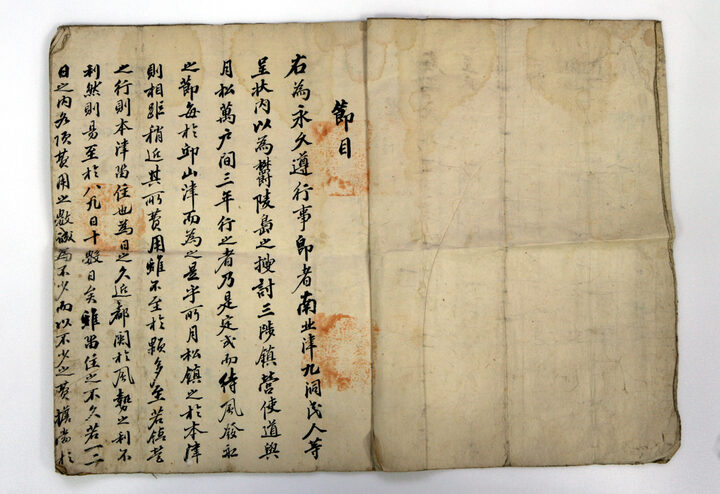 節目
右為永久遵行事卽者南北津九洞民人等
呈狀內以為鬱陵島之搜討三陟鎮營使道與
月松萬戶間三年行之者乃是定式而待風發船
之節每於邱山津而為之是乎所月松鎮之於本津
則相距稍近其所費用雖不至於夥多至若鎮營
之行則本津留住也為日之久近都關於風勢之利不
利然則易至於八九日十數日矣雖留住之不久若一二
日之內各項費用之數誠為不少而以不少之費擔當於